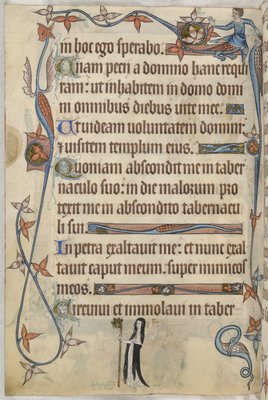 in hoc ego sperabo.
Unam pecii a domino hanc requi
ram: ut inhabitem in domo domi
ni omnibus diebus uite mee.
Ut uideam uoluntatem domini:
et uisitem templum eius.
Quoniam abscondit me in taber
naculo suo: in die malorum pro
texit me in abscondito tabernacu
li sui.
In petra exaltauit me: et nunc exal
tauit caput meum. super inimicos
meos.
Circuiui et immolaui in taber